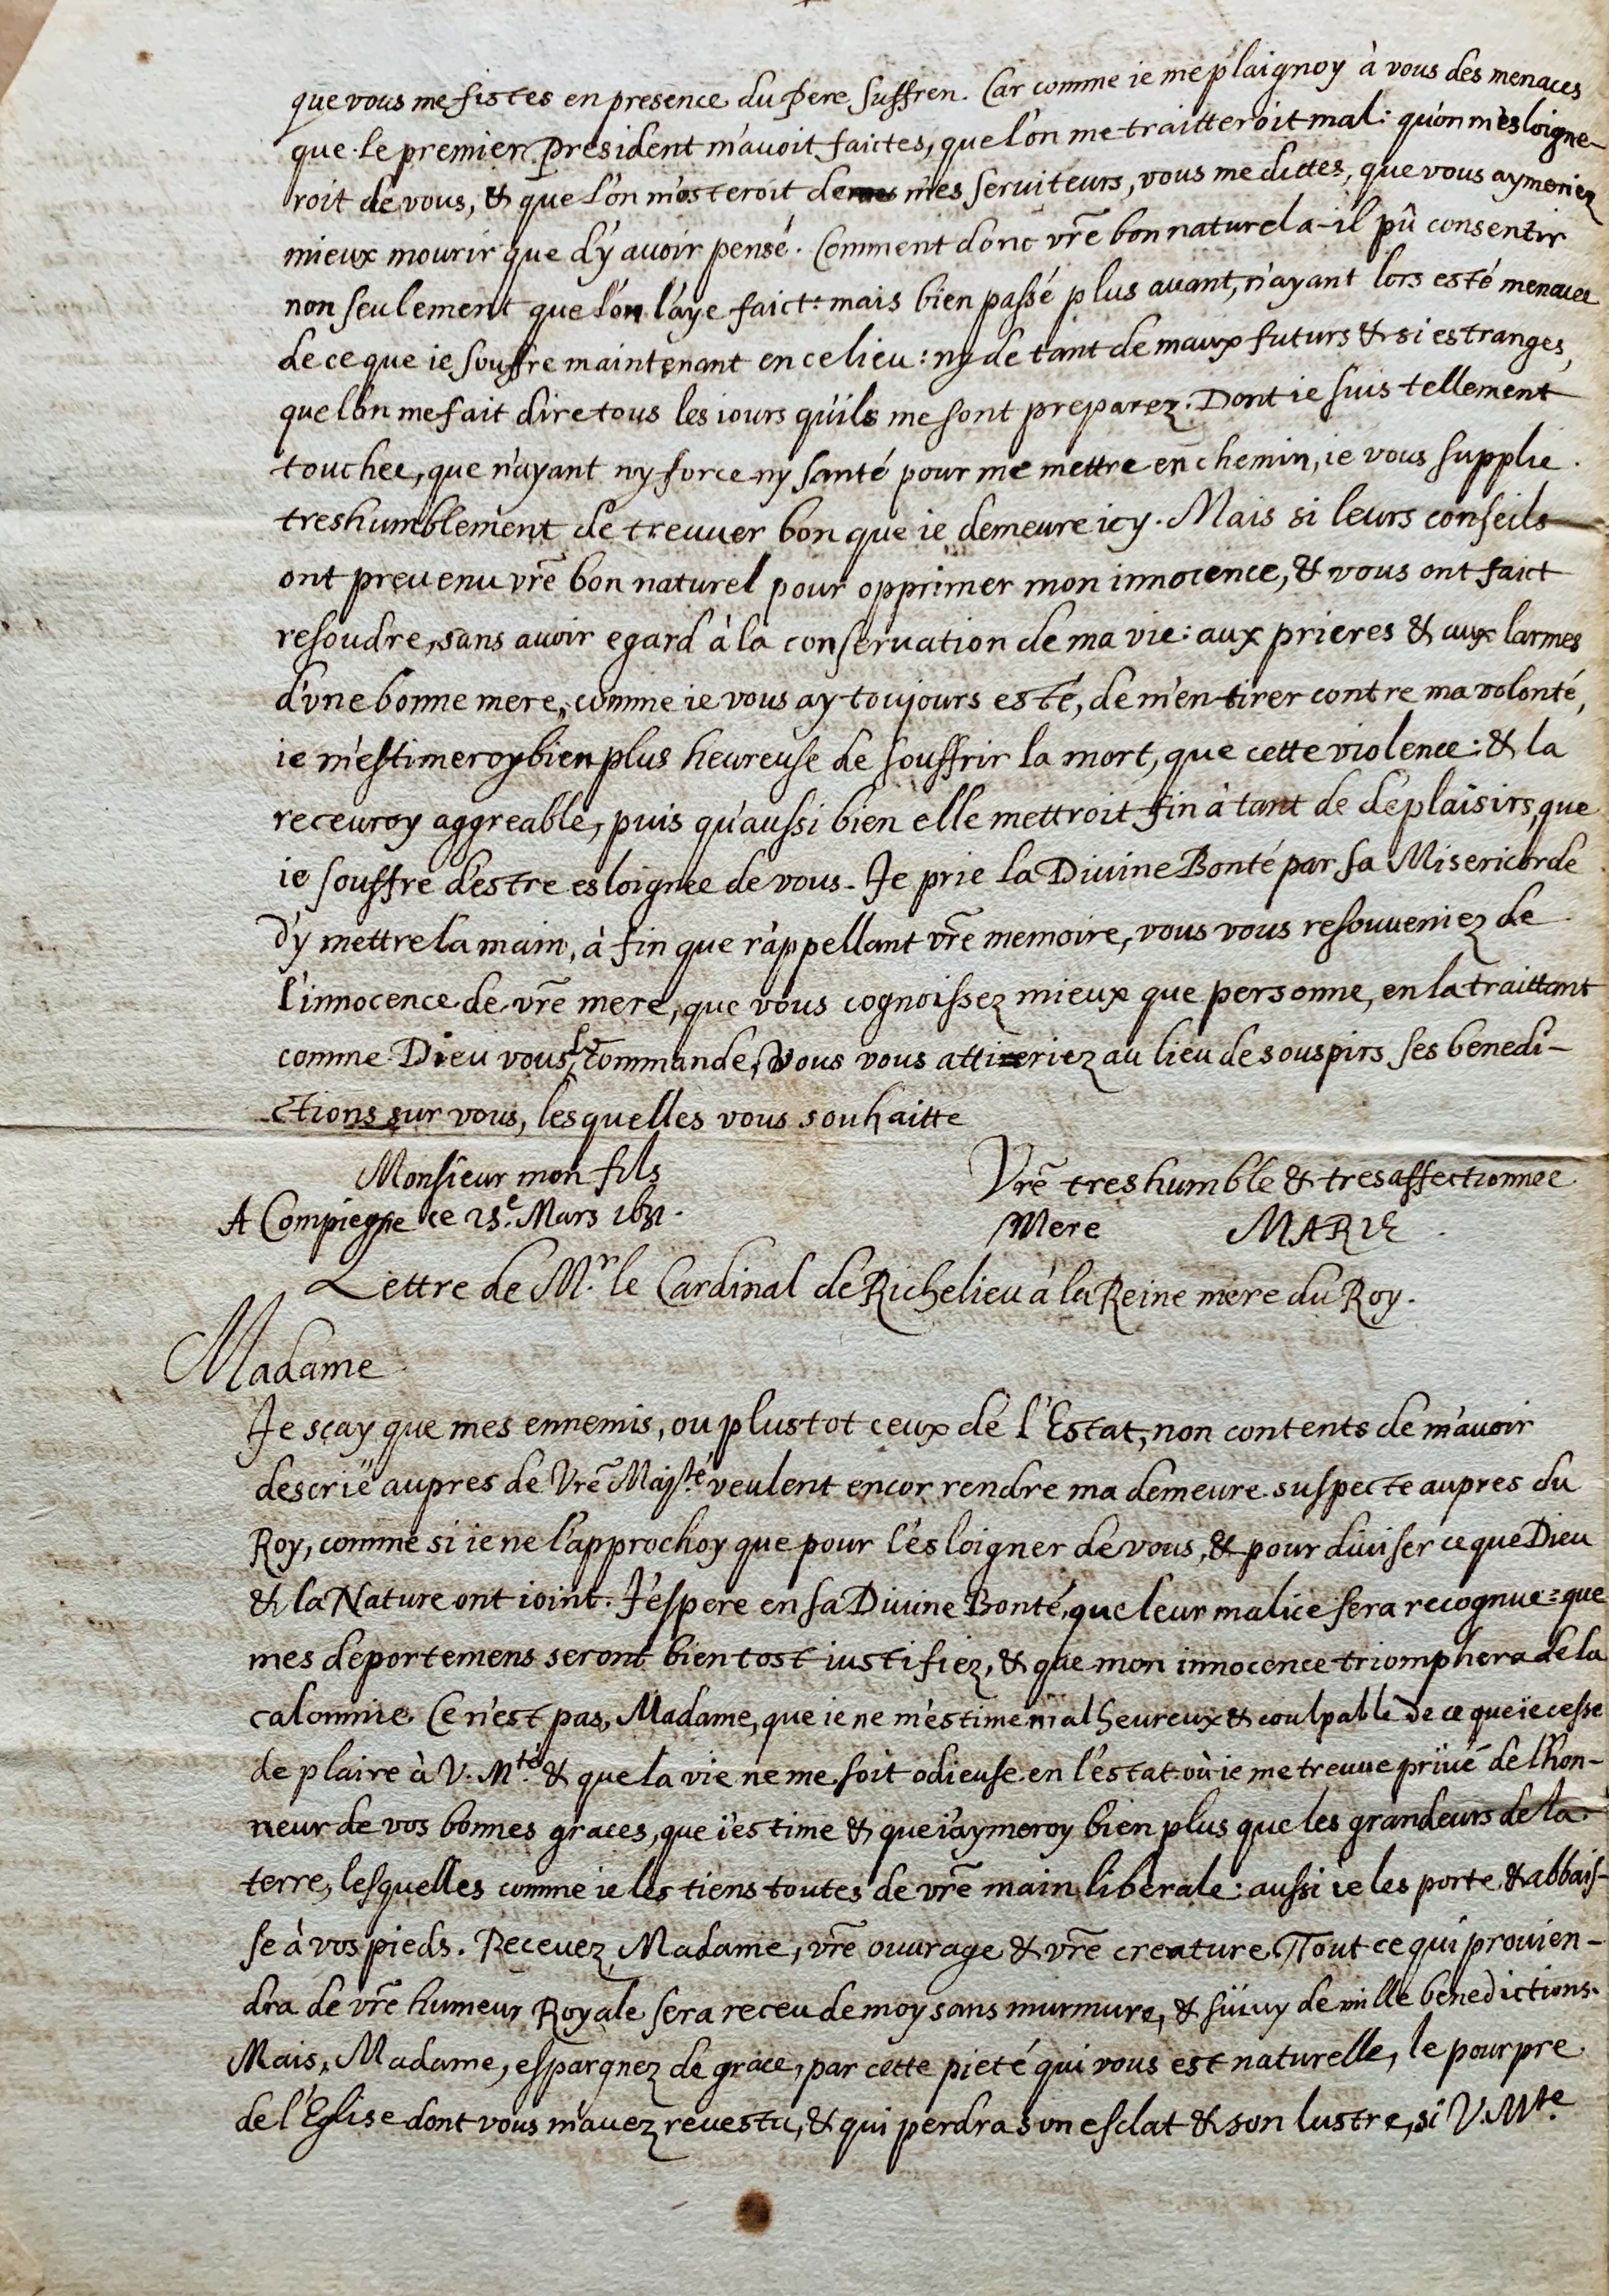 que vous me fistes en presence du Pere Suffren. Car comme ie me plaignoy à vous des menaces
que le premier President m'auoit faictes, que l'on me traitteroit mal: qu'on m'esloigne-
roit de vous, & que l'on m'osteroit de mes seruiteurs, vous me dittes, que vous aymeriez
mieux mourir que d'y auoir pensé. Comment donc vr̃e bon naturel a-il pû consentir
non seulement que l'on l'aye faict: mais bien passé plus auant, n'ayant lors esté menacee
de ce que ie souffre maintenant en ce lieu: ny de tant de maux futurs & si estranges,
que l'on me fait dire tous les iours qu'ils me sont preparez. Dont ie suis tellement
touchee, que n'ayant ny force ny santé pour me mettre en chemin, ie vous supplie
treshumblement de treuuer bon que ie demeure icy. Mais si leurs conseils
ont preuenu vr̃e bon naturel pour opprimer mon innocence, & vous ont faict
resoudre, sans auoir egard à la conseruation de ma vie: aux prieres & aux larmes
d'vne bonne mere, comme ie vous ay toujours esté, de m'en tirer contre ma volonté,
ie m'estimeroy bien plus heureuse de souffrir la mort, que cette violence: & la
receuroy aggreable, puis qu'aussi bien elle mettroit fin à tant de déplaisirs, que
ie souffre d'estre esloignee de vous. Je prie la Diuine Bonté par sa Misericorde
d'y mettre la main, à fin que r'appellant vr̃e memoire, vous vous resouueniez de
l'innocence de vr̃e mere, que vous cognoissez mieux que personne, en la traittant
comme Dieu vous le commande, Vous vous attireriez au lieu de souspirs ses benedi-
ctions sur vous, lesquelles vous souhaitte
Monsieur mon fils
Vr̃e treshumble & tresaffectionnee
A Compiegne ce 25.e Mars 1631.
Mere MARIE
Lettre de M.r le Cardinal de Richelieu à la Reine mere du Roy.
Madame
Je sçay que mes ennemis, ou plustot ceux de l'Estat, non contents de m'auoir
descrié aupres de Vr̃e Maj.sté veulent encor rendre ma demeure suspecte aupres du
Roy, comme si ie ne l'approchoy que pour l'esloigner de vous, & pour diuiser ce que Dieu
& la Nature ont ioint. J'espere en sa Diuine Bonté, que leur malice sera recognue: que
mes deportemens seront bien tost iustifiez, & que mon innocence triomphera de la
calomnie. Ce n'est pas, Madame, que ie ne m'estime malheureux & coulpable de ce que ie cesse
de plaire à V. M.té & que la vie ne me soit odieuse en l'estat où ie me treuue priué de l'hon-
neur de vos bonnes graces, que i'estime & que i'aymeroy bien plus que les grandeurs de la
terre, lesquelles comme ie les tiens toutes de vr̃e main liberale: aussi ie les porte & abbais-
se à vos pieds. Receuez, Madame, vr̃e ouurage & vr̃e creature. Tout ce qui prouien-
dra de vr̃e humeur Royale sera receu de moy sans murmure, & suiuy de mille benedictions.
Mais, Madame, espargnez de grace, par cette pieté qui vous est naturelle, le pourpre
de l'Eglise dont vous m'auez reuestu, & qui perdra son esclat & son lustre, si V. M.té